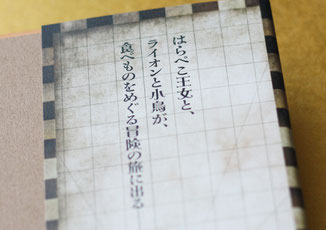 はらぺこ王女と、
ライオンと小鳥が、
食べものをめぐる冒険の旅に出る